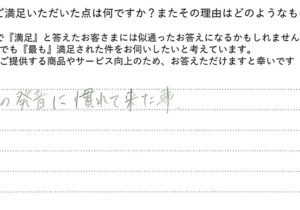 ご満足いただいた点は何ですか？またその理由はどのようなも
で『満足』と答えたお客さまには似通ったお答えになるかもしれません
でも『最も』満足された件をお伺いしたいと考えています。
ご提供する商品やサービス向上のため、お答えただけますと幸いです
の発音に慣れて来た事